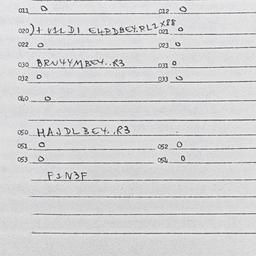 011 0 012 0
020 )+ V12 D1 E4RDBEY.RL2X88 021 0
022 0 023 0
030 BRU4YMBEY..R3 031 0
032 0 033 0
040 0
050 HAJDLBEY..R3
051 0 052 0
053 0 054 0
F1N3F